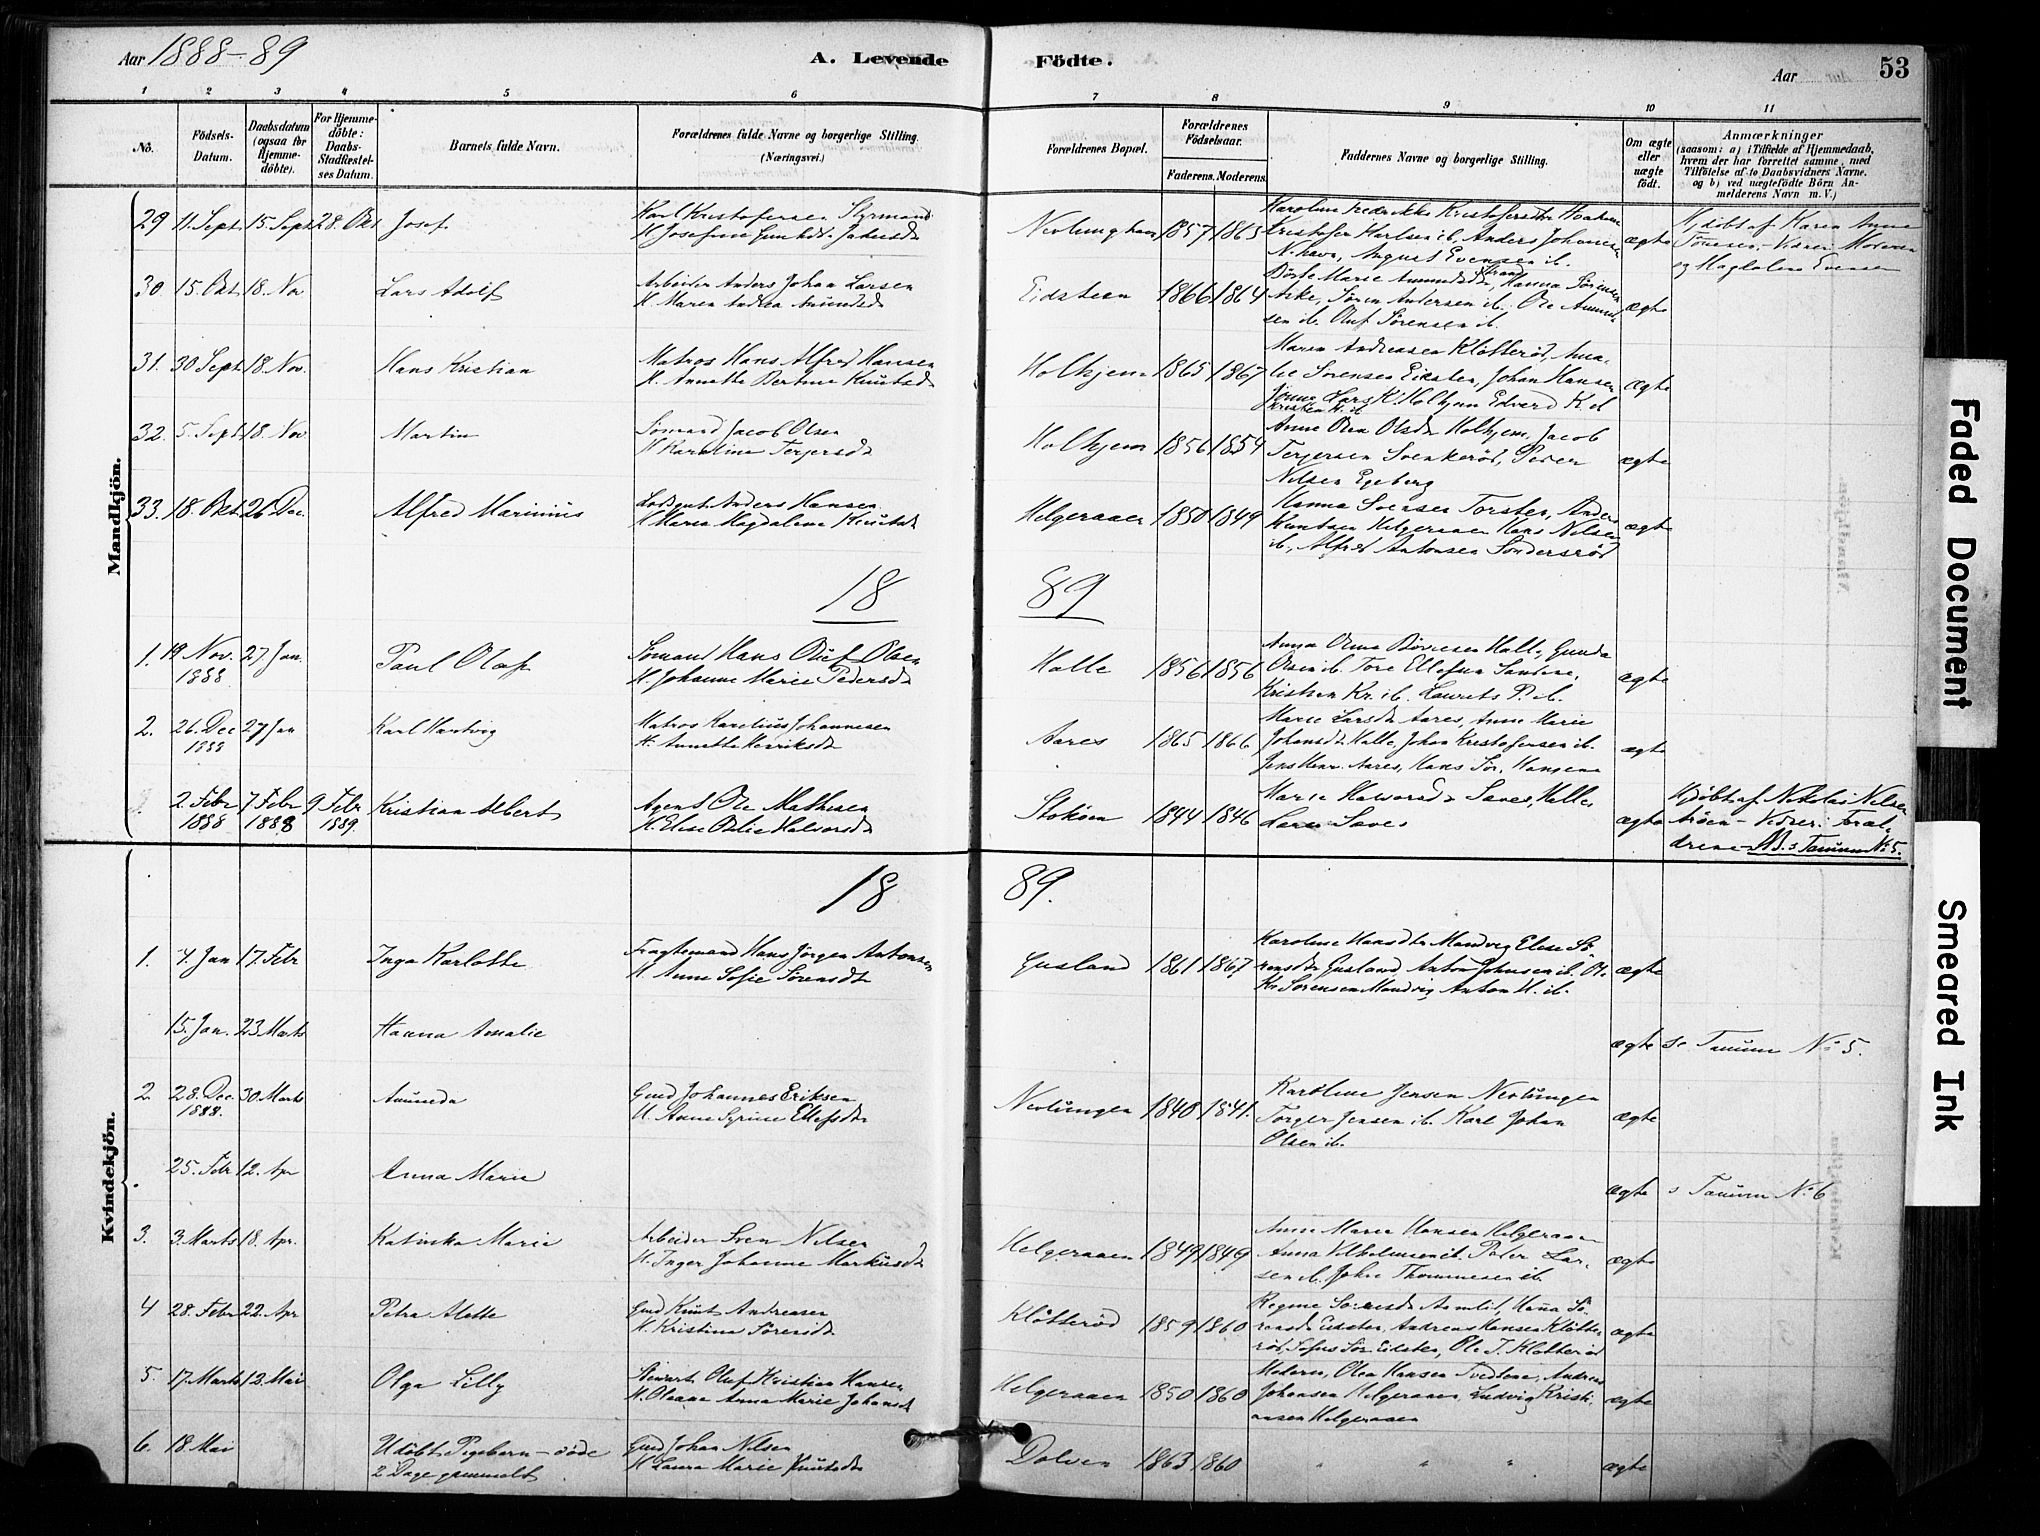 Aar 1888-89
A. Levende
Födte.
Aar
53
1 2 3 4 5 6 7 8 9 10 11
No.
Födsels-Datum.
Daabsdatum (ogsaa for Hjemme-döbte).
For Hjemme-döbte: Daabs-Stadfæstel-ses Datum.
Barnets fulde Navn.
Forældrenes fulde Navne og borgerlige Stilling.
(Næringsvei.)
Forældrenes Bopæl.
Forældrenes Födselsaar.
Faderens. Moderens.
Faddernes Navne og borgerlige Stilling.
Om ægte eller uægte födt.
Anmærkninger
(saasom: a) i Tilfælde af Hjemmedaab,
hvem der har forrettet samme, med
Tilföielse af to Daabsvidners Navne.
og b) ved uægtefödte Börn An-
melderens Navn m. V.)
Mandkjön.
29 11. Sept. 15. Sept 28. Okt Josef
Karl Kristofersen Styrmand
H. Josefine
1857 1863
Kristofer Karlsen ib, Anders Johannes
N.havn, August Evensen ib.
ægte
Hjdöbt af Karen Anne
og Magdalene Evensen
30. 15. Okt. 18. Nov Lars Adolf
Arbeider Anders Johan Larsen
H. Maren Andrea Amundsd
Eidsteen 1866 1864
Aske, Sören Andersen ib. Ole Amund-
sen ib. Oluf Sörensen ib.
ægte
31. 30 Sept. 18. Nov. Hans Kristian
Matros Hans Alfred Hansen
H. Annette Bertine Knutsd
Holhjem 1865 1867
Maren Andreasen Klötteröd, Ama-
lie Sorensen Eidsten, Johan Hansen
ægte
32. 5. Sept. 18. Nov. Martin
Sömand Jacob Olsen
H Karoline Terjersdt
Holhjem 1856 1854
Anne Olea Olsdt Holhjem, Jacob
Terjersen Svenkeröd, Peder
Nilsen Egeberg
ægte
33. 18. Okt. 26. Dec. Alfred Marinius
Anders Hansen
H Maren Magdalene Knutsd
Helgeraaen 1850 1849
Hanna Svensen Torsten, Anders
Knutsen Helgeraaen Hans Nilsen
ib., Alfred Antonsen Sondersröd
ægte
18 89
1. 19 Nov. 1888 27. Jan. Paul Olaf
Sömand Hans Oluf Olsen
H Johanne Marie Pedersdt
Halle 1856 1856
Anna Olina Börresen Halle, Gunda
Olsen ib. Tore Ellefsen
Kristian Kr. ib. Laurits P. ib.
ægte
2. 26. Dec 1888 27 Jan Karl Hartvig
Matros Karelius Johannesen
H. Annette Henriksdt
Aares 1865 1866
Marie Larsdt Aares, Anne Marie
Johansdt Halle, Johan Kristofersen ib.
Jens Henr. Aares, Hans Sör. Hansen
ægte
2. Febr 1888 7 Febr 1888 9 Febr 1889. Kristian Albert
Agent Ole Mathisen
H. Elise Oslie Halvorsdt
Stoköen 1844 1846
Marie Halvorsdt Saves, Halle,
Lars Saves
ægte
Hjdöbt af Nikolai Nilsen
Aröen - Vidner: Foræl-
drene - NB. s Tanum No 5.
Kvindekjön.
18 89.
1. 4. Jan 17. Febr Inga Karlotte
Fragtemand Hans Jörgen Antonsen
H. Anne Sofie Sörensdt
Gusland 1861 1867
Karoline Hansdtr Manvig Elise Sö-
rensdtr Gusland, Anton Johnsen ib. Ol.
Kr. Sörensen Manvig Anton H. ib.
ægte
15. Jan. 23 Marts Hanna Amalie
ægte se Tanum No 5.
2. 28. Dec. 1888. 30. Marts Amunda
Gmd Johannes Eriksen
H. Anne Gyrine Ellefsdtr
Nevlungen 1840 1841.
Karoline Jensen Nevlungen
Torger Jensen ib. Karl Johan
Olsen ib.
ægte
25. Febr 12. Apr Anna Marie
ægte s Tanum No 6
3. 3. Marts 18. Apr. Katinka Marie
Arbeider Sven Nilsen
H. Inger Johanne Markusdt
Helgeraaen 1849 1849
Anne Maren Hansen Helgeraaen
Anna Vilhelmsen ib. Peder Lar-
sen ib. John Thommesen ib.
ægte
4 28. Febr 22. Apr Petra Alette
Gmd Knut Andreasen
H. Kristina Sörensdt
Klötteröd 1859 1860
Regine Sörensdt Aamlit, Hanna Sö-
rensdt Eidsten, Andreas Hansen Klötte-
röd, Sofus Sör. Eidsten, Ole T. Klötteröd
ægte
5. 17. Marts 12. Mai Olga Lilly
Stewart Oluf Kristian Hansen
H. Oleane Anna Marie Johansd
Helgeraaen 1850 1860
Moderen, Olea Hansen Tvedtene, Andreas
Johansen Helgeraaen, Ludvig Kristi-
ansen Helgeraaen
ægte
6. 18 Mai Udöbt Pigebarn - döde
2 Dage gammelt
Gmd Johan Nilsen
H Laura Marie Knutsdt
Dolven 1863 1860 " " "
ægte
Faded Document
Smeared Ink